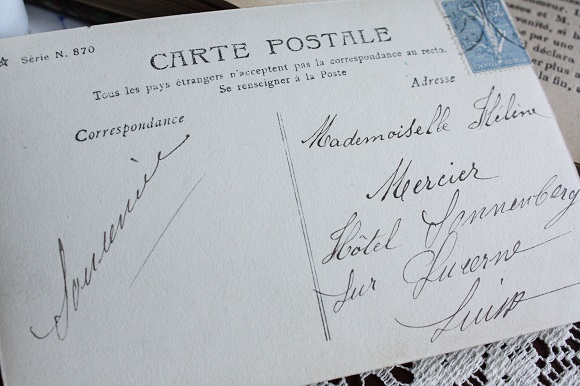 Série N. 870
CARTE POSTALE
Tous les pays étrangers n'acceptent pas la correspondance au recto.
Se renseigner à la Poste
Correspondance
Adresse
Souvenir
Mademoiselle Hélène
Mercier
Hôtel Sonnenberg
sur Lucerne
Suisse
déclara
la fin,